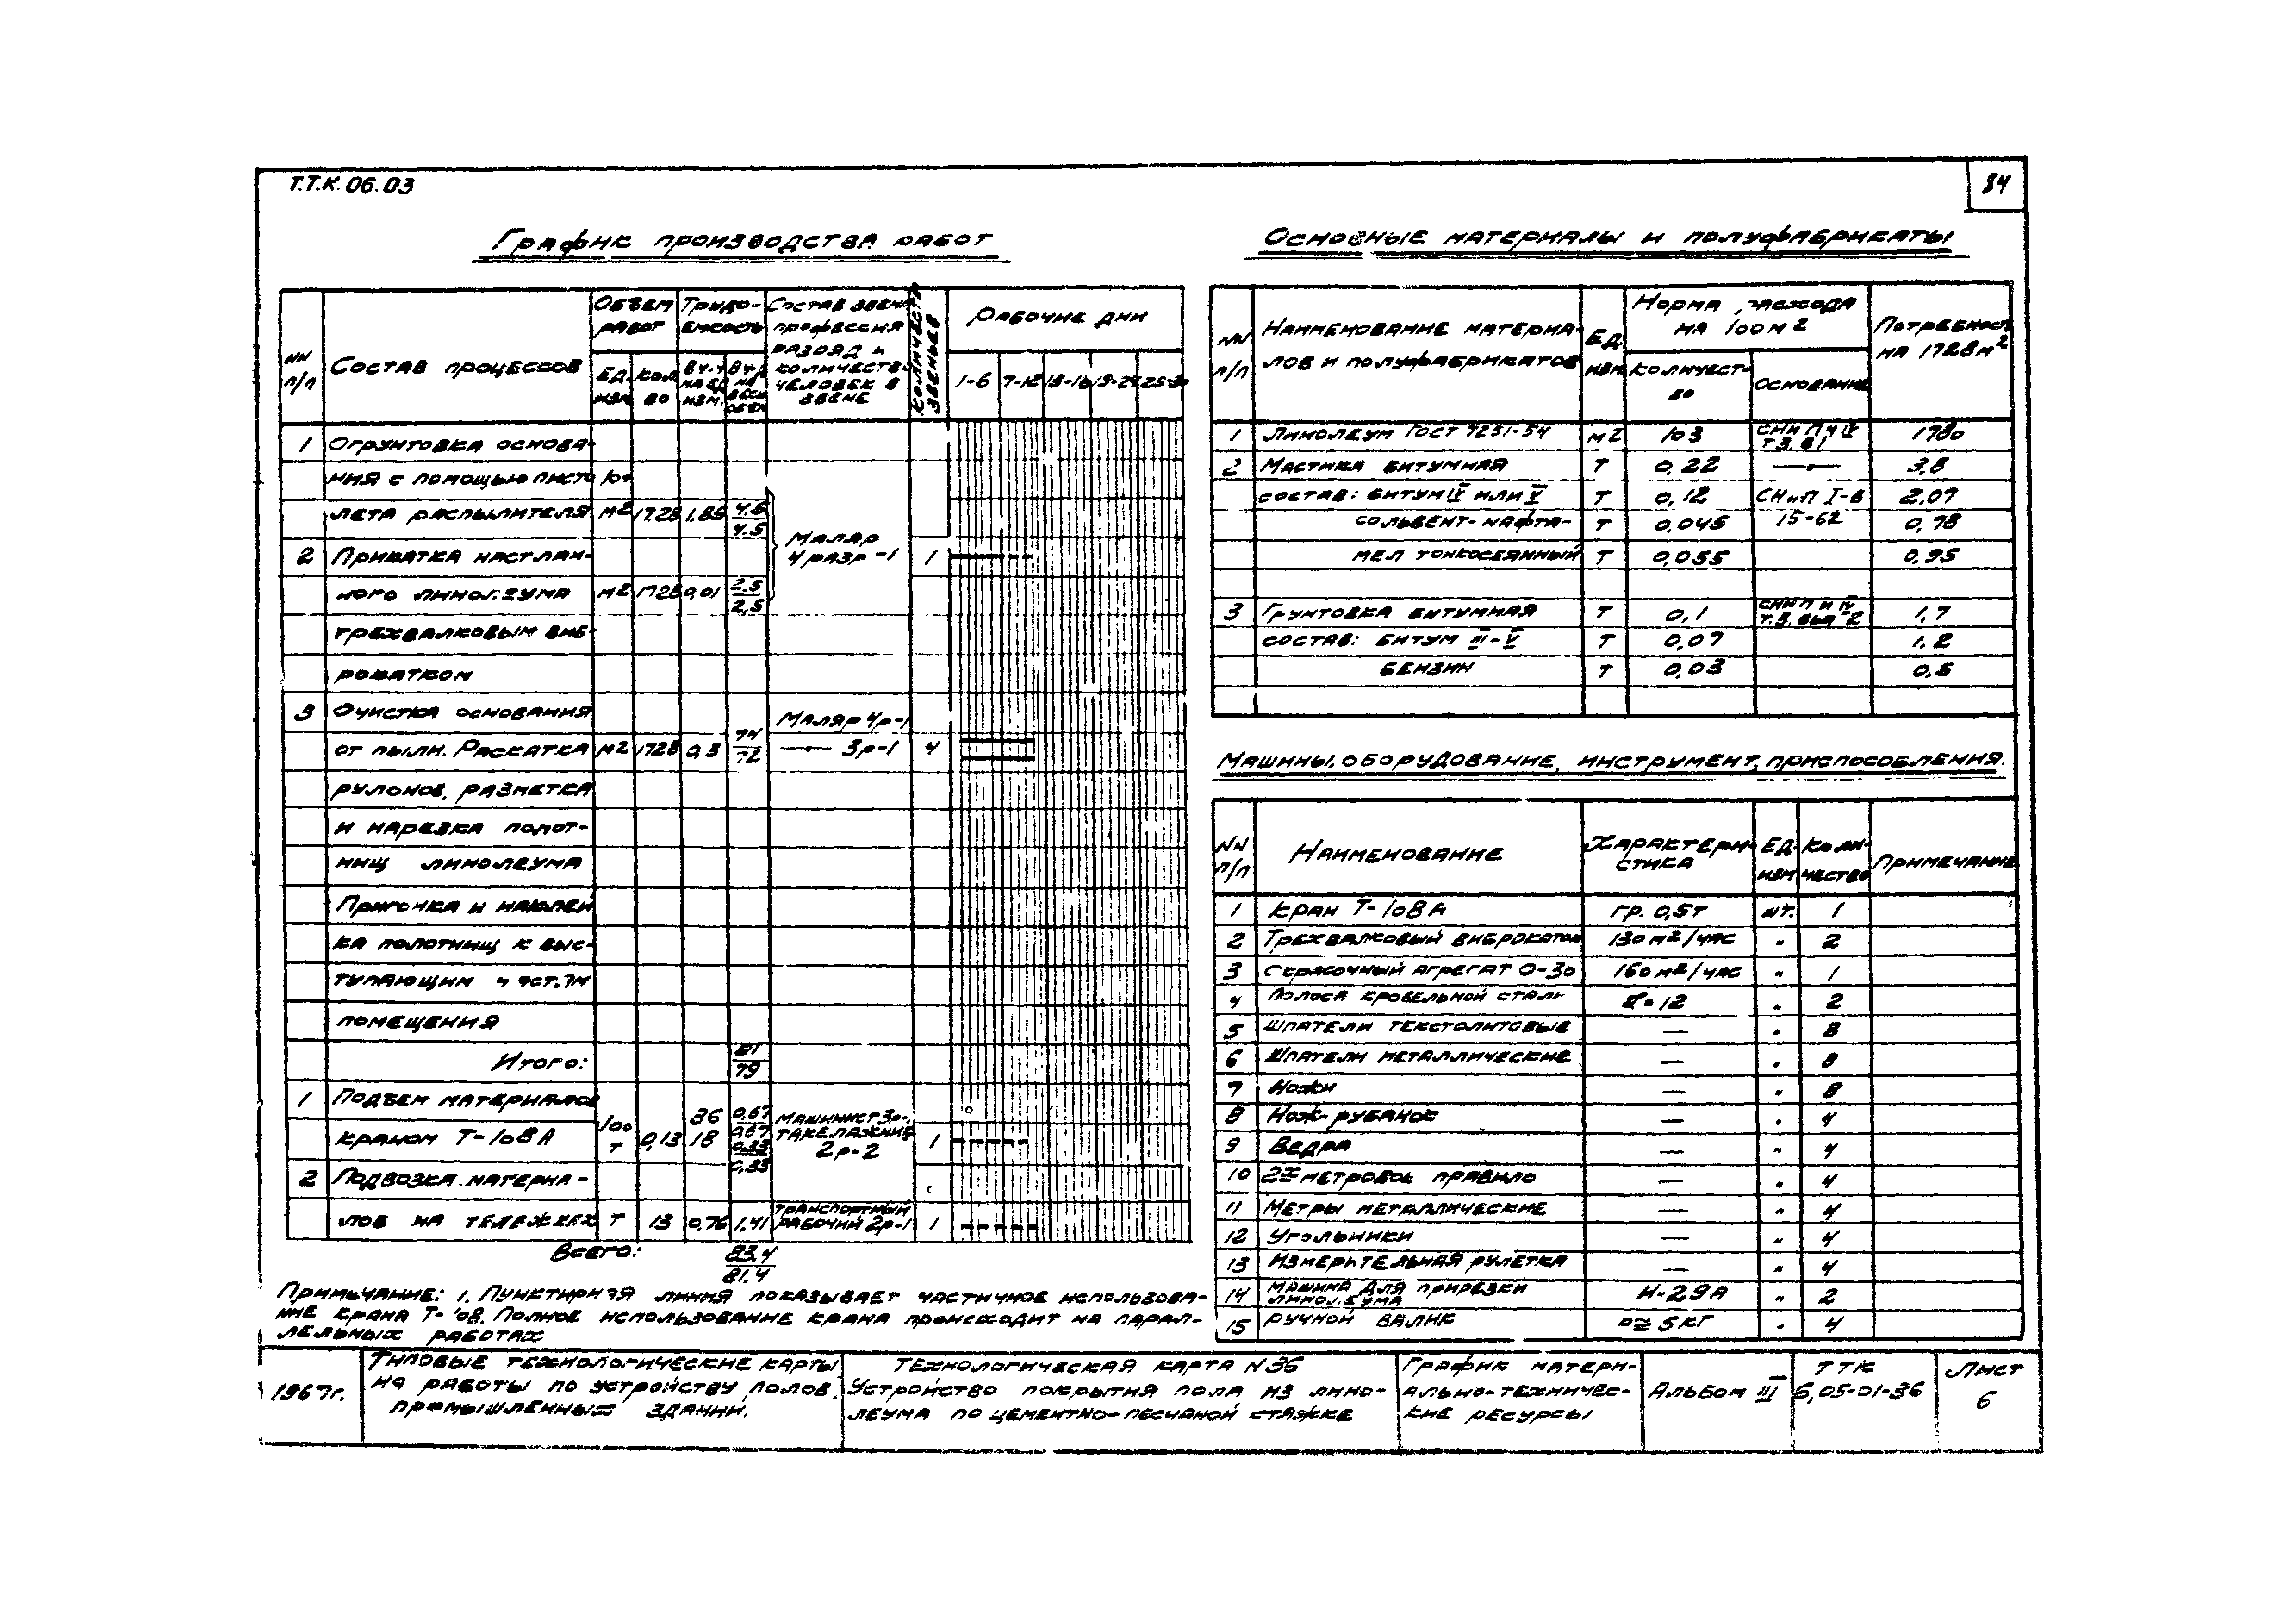 Т.Т.К. 06.03
84
График производства работ
NN п/п
Состав процессов
Объем работ
Трудоемкость
Состав звена профессия разряд и количество человек в звене
Количество звеньев
Рабочие дни
Ед. изм.
Кол. во
В ч-ч на ед. изм.
1-6 7-12 13-18 19-24 25-30
1 Огрунтовка основа-
ния с помощью писто 100
лета распылителя м2 17.28 1.85 4.5
4.5
Маляр
4 разр -1
2 Прикатка настлан- 1
ного линолеума м2 1728 0,01 2.5
2,5
трехвалковым виб-
рокатком
3 Очистка основания Маляр 4р-1
от пыли. Раскатка м2 1728 0,3 74 —"— 3р-1 4
72
рулонов, разметка
и нарезка полот-
нищ линолеума
Пригонка и наклей
ка полотнищ к выс-
тупающим част.ям
помещения
Итого: 81
79
1 Подъем материалов
краном Т-108А 100 т 0,13 36 18 0,67 0,67 0,33 0,33 Машинист 3р-1 такелажник 2р-2 1
2 Подвозка материа-
лов на тележках т 13 0,76 1.41 Транспортный рабочий 2р-1 1
Всего: 83.4
81.4
Примечание: 1. Пунктирная линия показывает частичное использова-
ние крана Т-108. Полное использование крана происходит на парал-
лельных работах
Основные материалы и полуфабрикаты
NN п/п
Наименование материа-
лов и полуфабрикатов
Ед. изм
Норма расхода
на 100 м2
Количест-
во
Основание
Потребность
на 1728м2
1 Линолеум ГОСТ 7251-54 м2 103 СНиП ч IV т.3. в1 1780
2 Мастика битумная т 0,22 —"— 3,8
состав: битум IV или V т 0,12 СНиП I-В 2,07
сольвент-нафта- т 0,045 15-62 0,78
мел тонкосеянный т 0,055 0,95
3 Грунтовка битумная т 0,1 СНиП ч IV т.3. вып 2 1,7
состав: битум III-V т 0,07 1,2
бензин т 0,03 0,5
Машины, оборудование, инструмент, приспособления.
NN п/п
Наименование
Характери-
стика
Ед. изм
Коли-
чество
Примечание
1 Кран Т-108А гр. 0,5т шт. 1
2 Трехвалковый виброкаток 130 м2/час " 2
3 Окрасочный агрегат О-30 160 м2/час " 1
4 Полоса кровельной стали " 2
5 Шпатели текстолитовые — " 8
6 Шпатели металлические — " 8
7 Ножи — " 8
8 Нож-рубанок — " 4
9 Ведра — " 4
10 2х метровое правило — " 4
11 Метры металлические — " 4
12 Угольники — " 4
13 Измерительная рулетка — " 4
14 Машина для прирезки линолеума И-29А " 2
15 Ручной валик р≅5кг " 4
1967г.
Типовые технологические карты
на работы по устройству полов
промышленных зданий.
Технологическая карта N36
Устройство покрытия пола из лино-
леума по цементно-песчаной стяжке
График матери-
ально-техничес-
кие ресурсы
Альбом III
ТТК
6,05-01-36
Лист
6